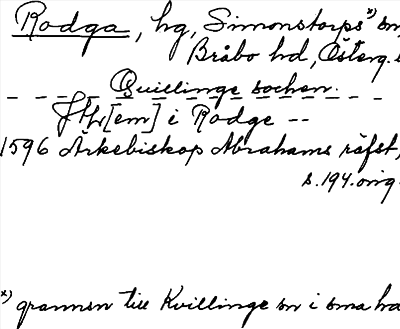 Rodga, hg, Simonstorps x) sn,
Bråbo hd, Österg.
Quillinge sochen.
[em] i Rodge --
1596 Ärkebiskop Abrahams räfst,
s. 194. orig.
x) grannsn till Kvillinge sn i sma hd